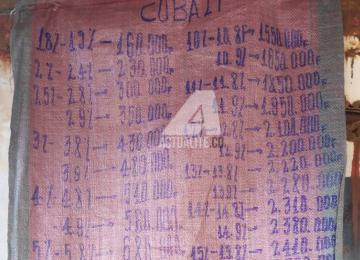 COBALT
1.8% - 1.9% → 160.000F
2% - 2.4% → 230.000F
2.5% - 2.8% → 300.000F
2.9% → 350.000F
3% - 3.8% → 430.000
3.9% → 480.000
4% - 4.8% →
4.9% → 580.000
5% - 5.8% → 680.000
10% - 10.8% → 1550.000F
10.9% → 1650.000F
11% - 11.8% → 1850.000F
11.9% → 1.950.000F
→ 2.100.000F
12.9% → 2.200.000
13% → 2.220.000F
13.9% → 2.280.000
14% - 14.8% → 2.310.000
14.9% → 2.380.000
15% - 15.8% → 2.410.000
ACTUALITE.CD